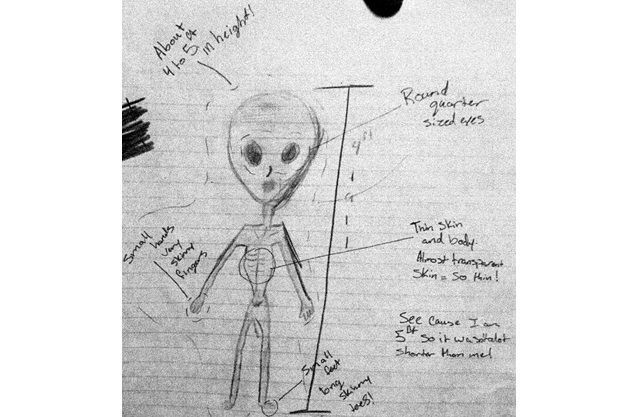 About
4 to 5 ft
in height!
Round
quarter
sized eyes
4 ft
Small
hands
very
skinny
fingers
Thin skin
and body.
Almost transparent
skin = so thin!
See cause I am
5 ft so it was
shorter than me!
Small
feet
long
skinny
toes!